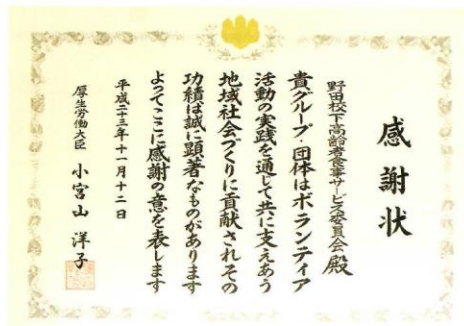 感謝状
野田校下高齢者食事サービス委員会 殿
貴グループ・団体はボランティア
活動の実践を通して共に支えあう
地域社会づくりに貢献されその
功績は誠に顕著なものがあります
よってここに感謝の意を表します
平成二十三年十一月十二日
厚生労働大臣 小宮山 洋子